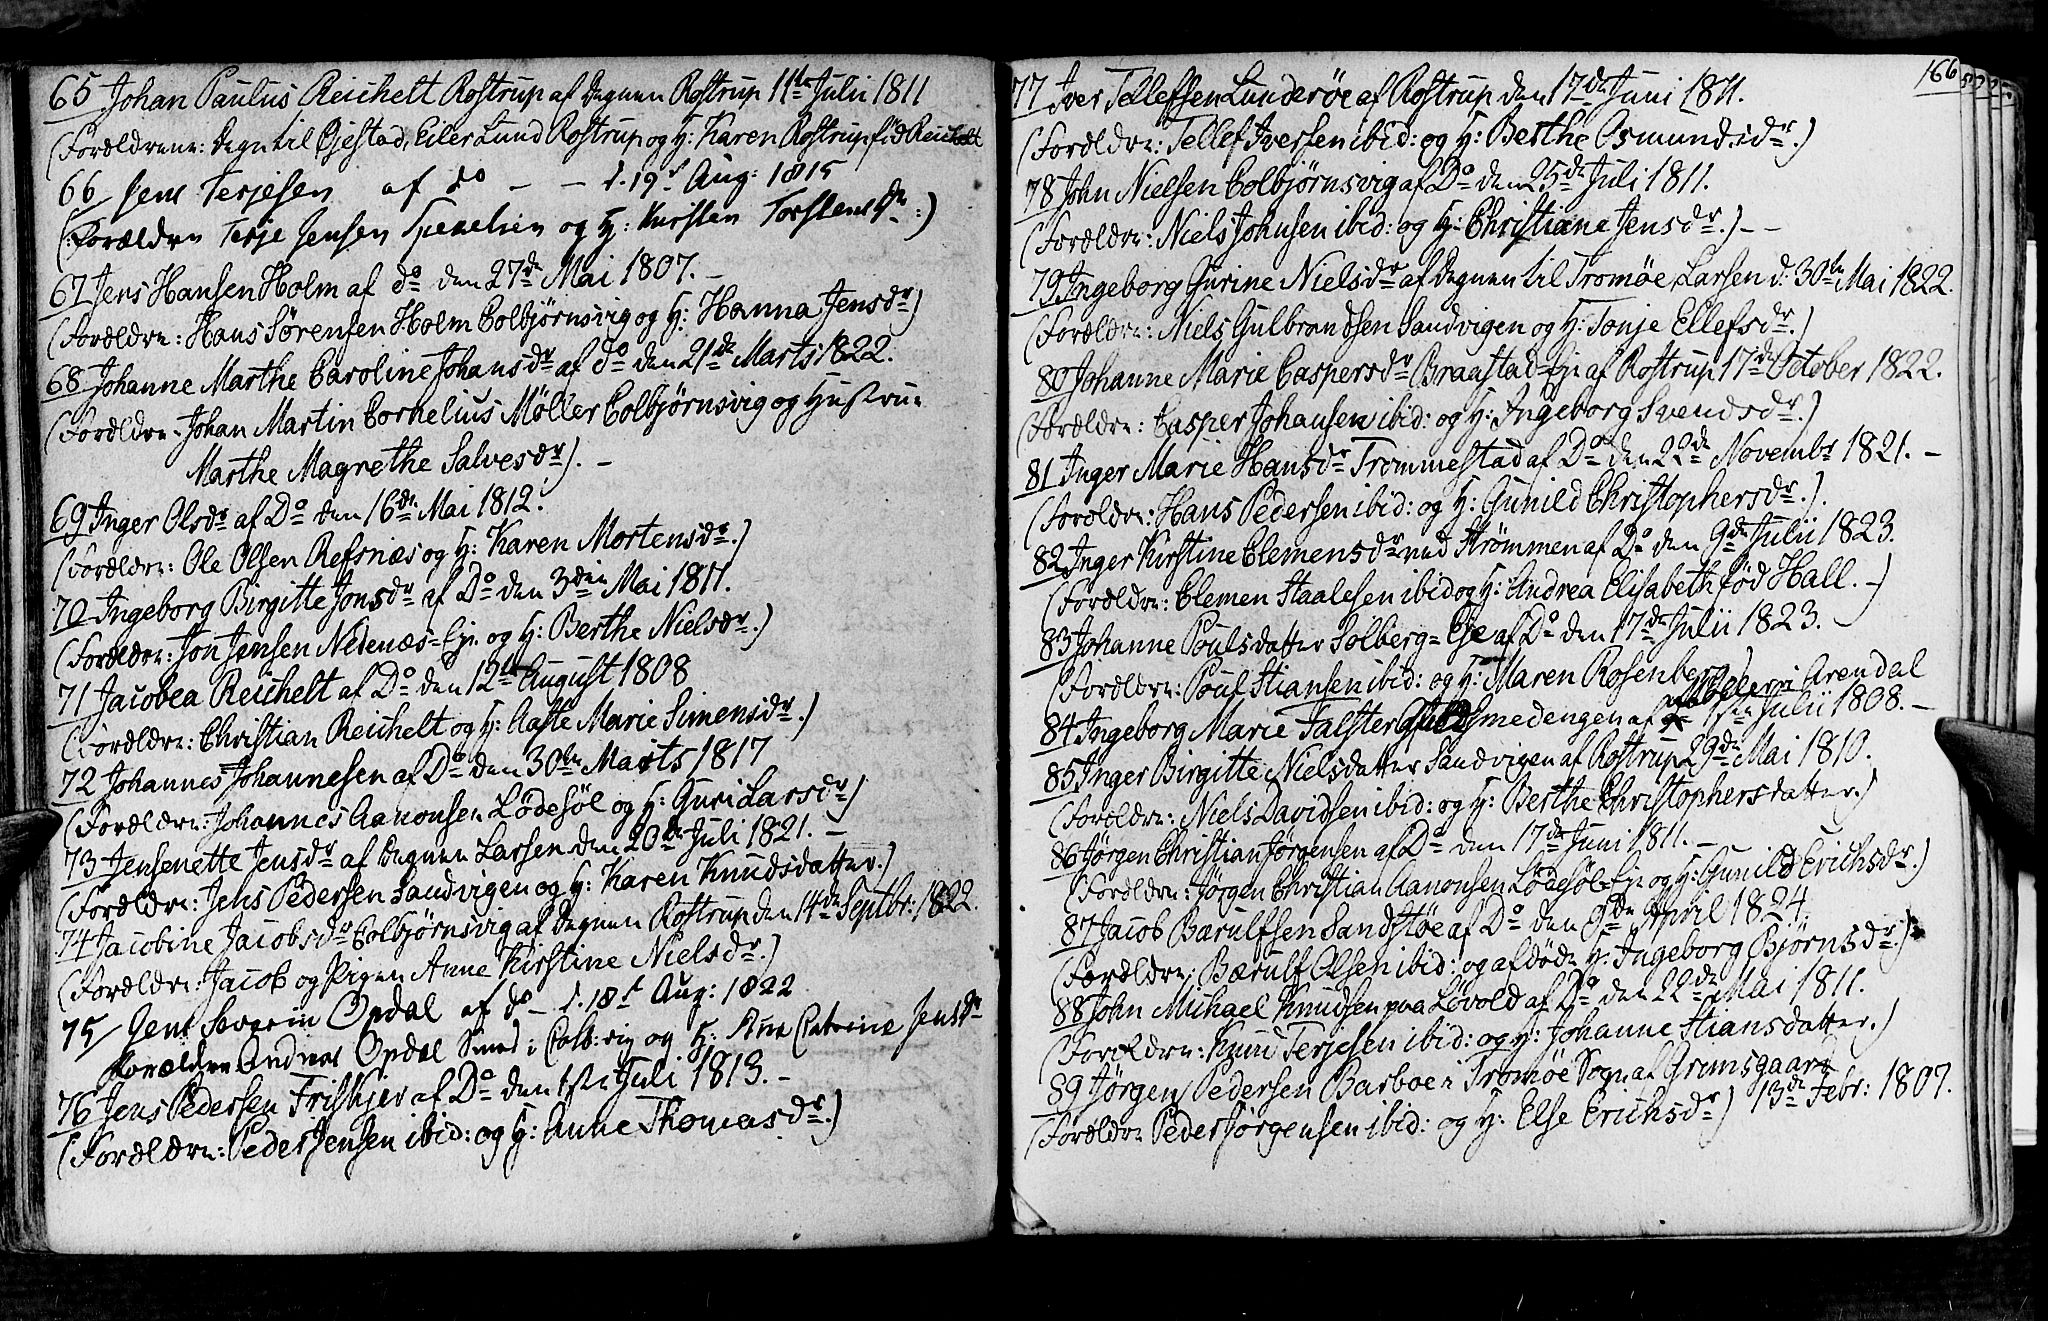 65 Johan Paulus Reichelt Rostrup af Degnen Rostrup 11te Julii 1811
(Forældrene: Degn til Øjestad, Eiler Lund Rostrup og H: Karen Rostrup fød Reichelt
66 Jens Terjesen af do - - d. 19d Aug: 1815
(Forældre Terje Jensen og H: Kirsten Torstens dr:)
67 Jens Hansen Holm af do den 27de Mai 1807. -
(Forældre: Hans Sørensen Holm Colbjørnsvig og H: Hanna Jensdr)
68 Johanne Marthe Caroline Johansdr af do den 21de Marts 1822.
(Forældre: Johan Martin Cornelius Møller Colbjørnsvig og Hustrue
Marthe Magrethe Salvesdr). -
69 Inger Olsdr af Do den 16de Mai 1812.
(Forældre: Ole Olsen Refsnæs og H: Karen Mortensdr.)
70 Ingeborg Birgitte Jonsdr af Do den 3die Mai 1811.
(Forældre: Jon Jensen Nedenæs=Eje og H: Berthe Nielsdr.)
71 Jacobea Reichelt af Do den 12te August 1808
(Forældre: Christian Reichelt og H: Aaste Marie Simensdr.)
72 Johannes Johannesen af Do den 30te Marts 1817
(Forældre: Johannes Aanonsen Lødesøl og H: Guri Larsdr)
73 Jensenette Jensdr af Degnen Larsen den 20de Juli 1821. -
(Forældre: Jens Pedersen Sandvigen og H: Karen Knudsdatter.)
74 Jacobine Jacobsdr Colbjørnsvig af Degnen Rostrup den 14de Septbr: 1822.
(Forældre: Jacob og Pigen Anne Kirstine Nielsdr.)
75 Jens Severin Opdal af do - d. 18d Aug: 1822
Forældre Andreas Opdal Smed i Colb:vig og H: Ane Catrine Jensdr
76 Jens Pedersen Friskjer af Do den 1ste Juli 1813. -
(Forældre: Peder Jensen ibid: og H: Anne Thomasdr.)
166
77 Iver Tellefsen Lunderøe af Rostrup den 17de Juni 1811.
(Forældre: Tellef Iversen ibid: og H: Berthe Osmundsdr.)
78 John Nielsen Colbjørnsvig af Do den 25de Juli 1811.
(Forældre: Niels Johnsen ibid: og H: Christiane Jensdr.) - -
79 Ingeborg Gurine Nielsdr af Degnen til Tromøe, Larsen d: 30te Mai 1822.
(Forældre: Niels Gulbrandsen Sandvigen og H: Tonje Ellefsdr.)
80 Johanne Marie Caspersdr Braastad=Eje af Rostrup 17de October 1822.
(Forældre: Casper Johansen ibid: og H: Ingeborg Svendsdr.)
81 Inger Marie Hansdr Trommestad af Do den 22de Novembr 1821. -
(Forældre: Hans Pedersen ibid: og H: Gunild Christophersdr.).
82 Inger Kirstine Clemensdr ved Strømmen af Do den 9de Julii 1823.
(Forældre: Clemen Staalesen ibid og H: Andrea Elisabeth fød Hall. -)
83 Johanne Poulsdatter Solberg=Eje af Do den 17de Julii 1823. -
(Forældre: Poul Stiansen ibid: og H: Maren Rosenberg)
84 Ingeborg Marie Falster Guldsmedengen af Møller i Arendal 1ste Julii 1808. -
85 Inger Birgitte Nielsdatter Sandvigen af Rostrup 29de Mai 1810.
(Forældre: Niels Davidsen ibid: og H: Berthe Christophersdatter.)
86 Jørgen Christian Jørgensen af Do den 17de Juni 1811. -
(Forældre: Jørgen Christian Aanonsen Lødesøl=Eje og H: Gunild Erichsdr.)
87 Jacob Bærulfsen Sandstøe af Do den 9de April 1824.
(Forældre: Bærulf Olsen ibid: og afdøde H: Ingeborg Bjørnsdr.)
88 John Michael Knudsen paa Løvold af Do den 22de Mai 1811.
(Forældre: Knud Terjesen ibid: og H: Johanne Stiansdatter.)
89 Jørgen Pedersen Barboe i Tromøe Sogn af Grimsgaard
(Forældre Peder Jørgensen ibid: og H: Else Erichsdr) 13de Febr: 1807.